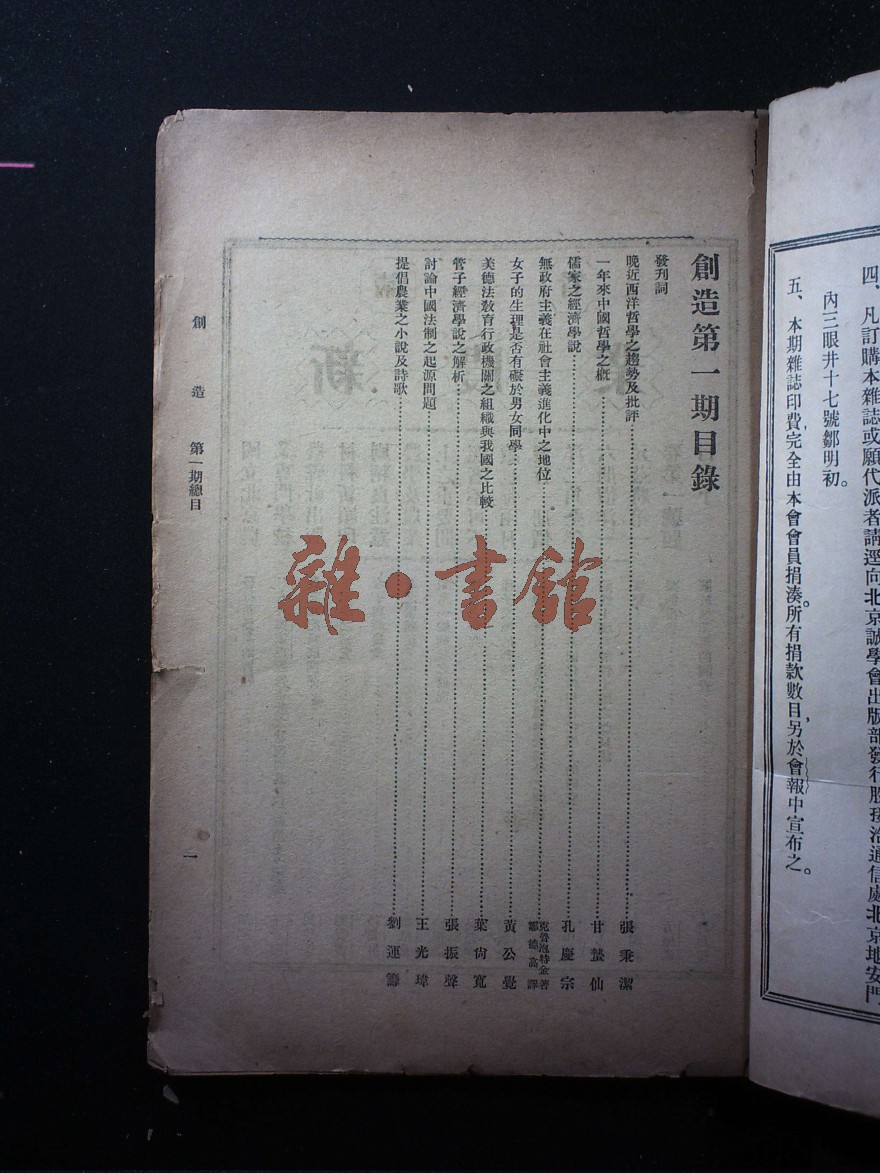 四、凡訂購本雜誌或願代派者請逕向北京誠學會出版部發行股接洽通信處北京地安門
內三眼井十七號鄒明初。
五、本期雜誌印費完全由本會會員捐湊。所有捐款數目，另於會報中宣布之。
創造第一期目錄
發刊詞
晚近西洋哲學之趨勢及批評 張秉潔
一年來中國哲學之概 甘蟄仙
儒家之經濟學說 孔慶宗
無政府主義在社會主義進化中之地位 克魯泡特金著 鄒德高譯
女子的生理是否有礙於男女同學 黃公覺
美德法教育行政機關之組織與我國之比較 葉尙寬
管子經濟學說之解析 張振聲
討論中國法制之起源問題 王光瑋
提倡農業之小說及詩歌 劉運籌
創造 第一期總目
一
雜·書館